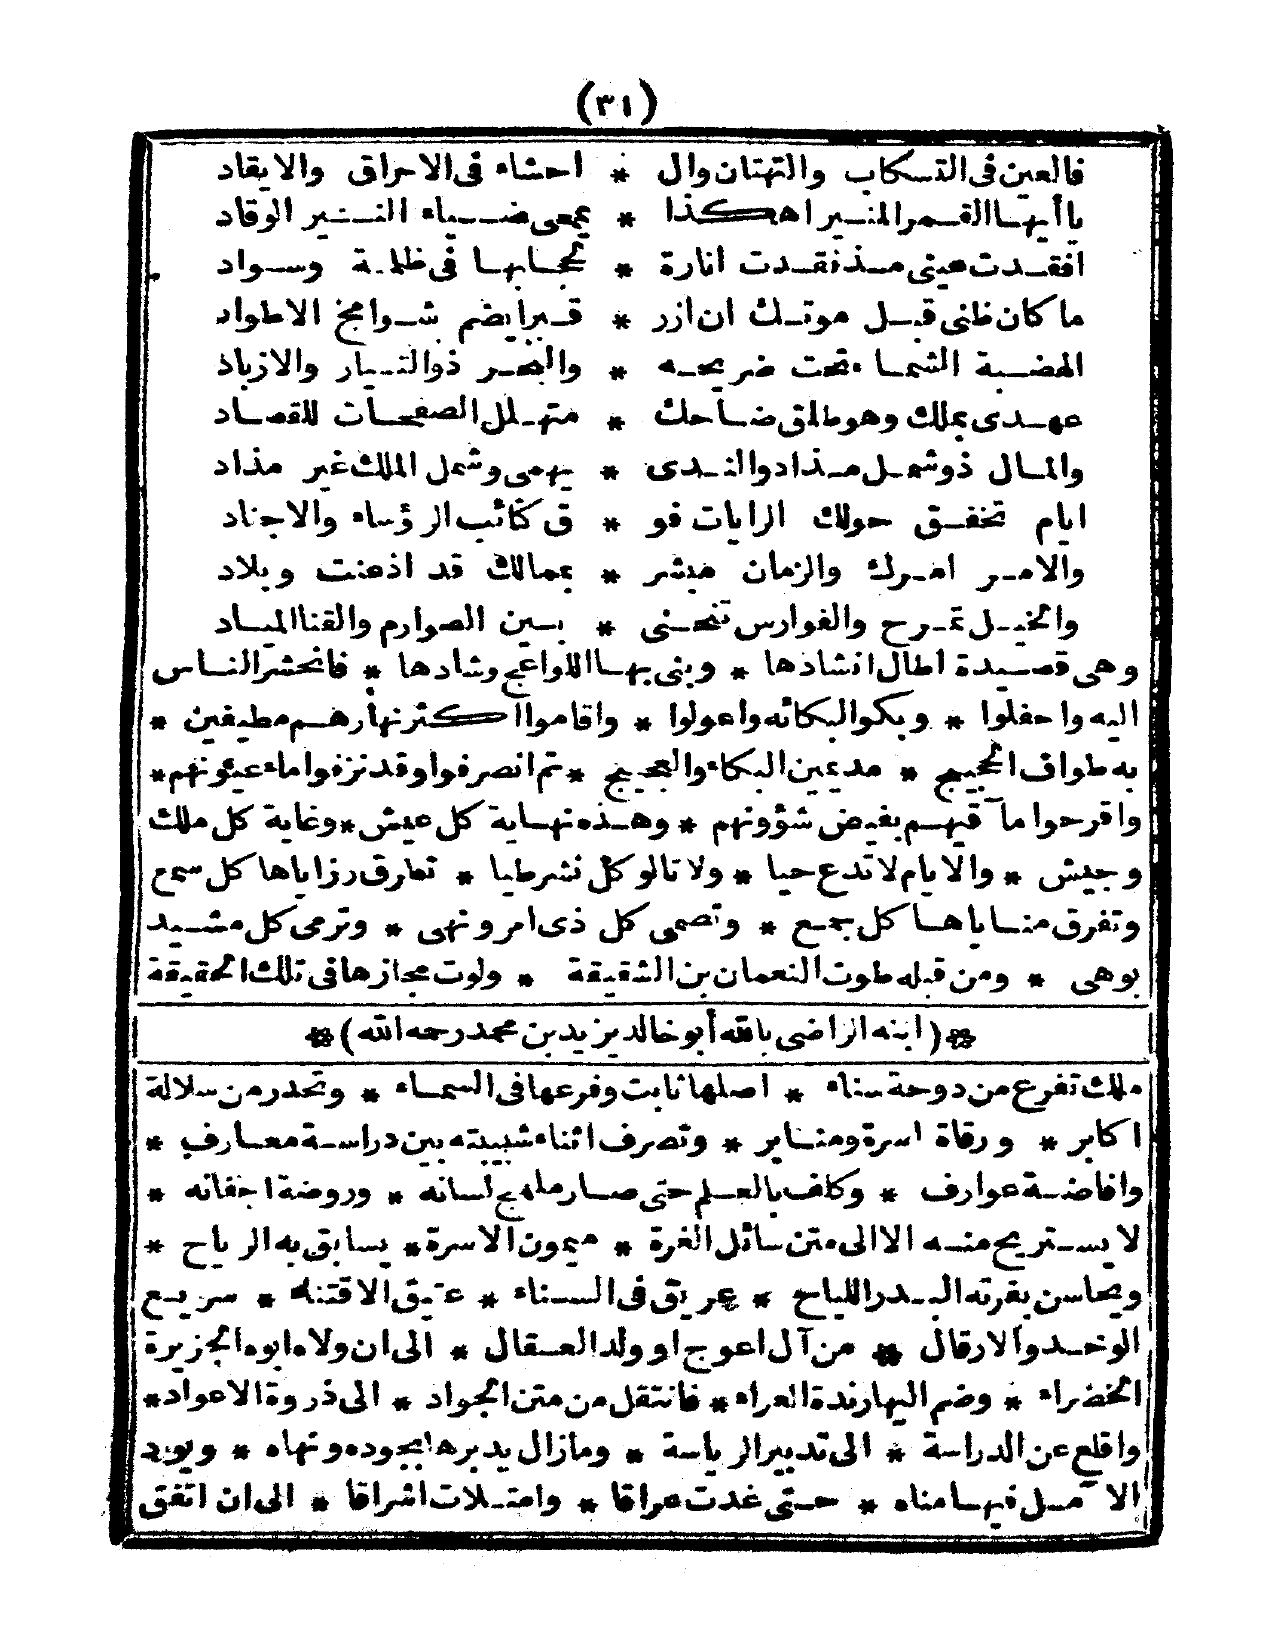 (٣١)
فالعين فى التسكاب والتهتان وال * احشاء فى الاحراق والايقاد
ياأيها القمر المنير اهكذا * يمحى ضياء النير الوقاد
افقدت عينى مذ فقدت انارة * لحجابها فى ظلمة وسواد
ما كان ظنى قبل موتك ان ازر * قبرا يضم شوامخ الاطواد
الهضبة الشماء تحت ضريحه * والبحر ذو التيار والازباد
عهدى بملك وهو طلق ضاحك * متهلل الصفحات للقصاد
والمال ذو شمل مذاد والندى * يهمى وشمل الملك غير مذاد
ايام تخفق حولك الرايات فو * ق كتائب الرؤساء والاجناد
والامر امرك والزمان مبشر * بممالك قد اذعنت وبلاد
والخيل تمرح والفوارس تنحنى * بين الصوارم والقنا المياد
وهى قصيدة اطال انشادها * وبنى بها اللواعج وشادها * فانحشر الناس
اليه واحفلوا * وبكوا لبكائه واعولوا * واقاموا اكثر نهارهم مطيفين *
به طواف الحجيج * مديمين البكاء والعجيج * ثم انصرفوا وقد نزفوا ماء عيونهم *
واقرحوا مآقيهم بفيض شؤونهم * وهذه نهاية كل عيش * وغاية كل ملك
وجيش * والايام لا تدع حيا * ولا تالو كل نشر طيا * تطرق رزاياها كل سمع
وتفرق مناياها كل جمع * وتصمى كل ذى امر ونهى * وترمى كل مشيد
بوهى * ومن قبله طوت النعمان بن الشقيقة * ولوت مجازها فى تلك الحقيقة
*(ابنه الراضى بالله أبو خالد يزيد بن محمد رحمه الله)*
ملك تفرع من دوحة سناء * اصلها ثابت وفرعها فى السماء * وتحدر من سلالة
اكابر * ورقاة اسرة ومنابر * وتصرف اثناء شبيبته بين دراسة معارف *
وافاضة عوارف * وكلف بالعلم حتى صار ملهج لسانه * وروضة اجفانه *
لا يستريح منه الا الى متن سائل الغرة * ميمون الاسرة * يسابق به الرياح *
ويحاسن بغرته البدر اللياح * عريق فى السناء * عتيق الاقتناء * سريع
الوخد والارقال * من آل اعوج او ولد العقال * الى ان ولاه ابوه الجزيرة
الخضراء * وضم اليها رندة الغراء * فانتقل من متن الجواد * الى ذروة الاعواد *
واقلع عن الدراسة * الى تدبير الرياسة * ومازال يدبرها بجوده ونهاه * ويورد
الآمل فيها مناه * حتى غدت عراقا * وامتلات اشراقا * الى ان اتفق